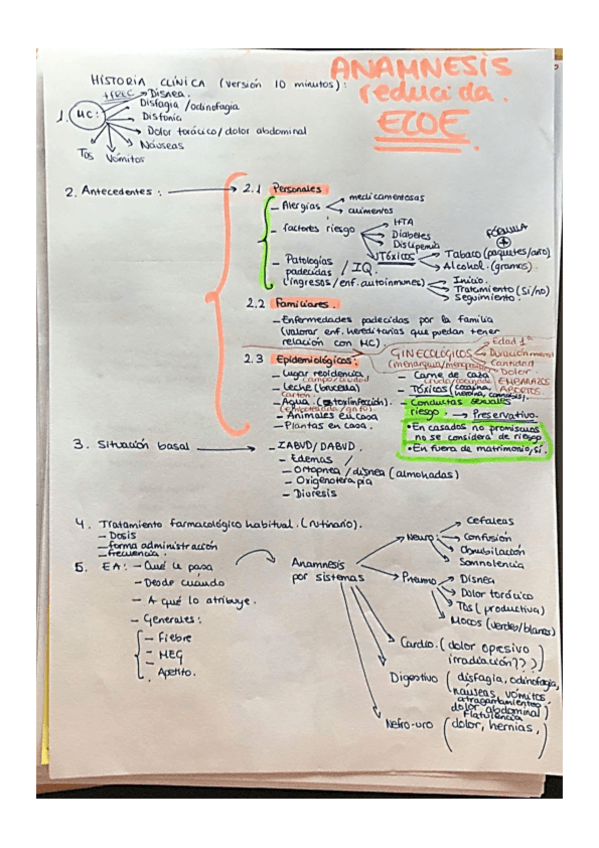 ANAMNESIS
reducida.
ECOE.
HISTORIA CLÍNICA (versión 10 minutos):
1. MC:
Disnea.
Disfagia / odinofagia
Disfonía
Dolor torácico / dolor abdominal
Náuseas
Vómitos
Tos
2. Antecedentes:
2.1 Personales:
- Alergias
medicamentosas
alimentos
- factores riesgo
HTA
Diabetes
Dislipemia
Tóxicos
FÓRMULA
+
Tabaco (paquetes/año)
Alcohol. (gramos).
- Patologías padecidas / IQ.
(ingresos / enf. autoinmunes)
Inicio.
Tratamiento (si/no)
Seguimiento.
2.2 Familiares.
- Enfermedades padecidas por la familia
(valorar enf. hereditarias que puedan tener
relación con MC).
GINECOLÓGICOS
(menarquia/menopausia)
Edad 1ª
Duración
Cantidad
Dolor.
EMBARAZOS
ABORTOS.
2.3 Epidemiológicos:
- Lugar residencia
campo/ciudad
- Leche (brucella)
cartón.
- Agua. (toxiinfección)
(embotellada / grifo)
- Animales en casa
- Plantas en casa.
- Carne de caza
cruda/cocinada
- Tóxicos (cocaína,
heroína, cannabis).
- Conductas sexuales
riesgo. → Preservativo.
• En casados no promiscuos
no se considera de riesgo
• En fuera de matrimonio, sí.
3. Situación basal
- IABVD / DABVD.
- Edemas
- Ortopnea / disnea (almohadas)
- Oxigenoterapia
- Diuresis
4. Tratamiento farmacológico habitual. (rutinario).
- Dosis
- forma administración
- frecuencia.
5. EA: - Qué le pasa
- Desde cuándo
- A qué lo atribuye.
- Generales:
- Fiebre
- MEG
- Apetito.
Anamnesis
por sistemas
Neuro:
Cefaleas
Confusión
Obnubilación
Somnolencia
Pneumo
Disnea
Dolor torácico
Tos (productiva)
Mocos (verdes/blancos)
Cardio. (dolor opresivo
irradiación??)
Digestivo (disfagia, odinofagia,
náuseas, vómitos
atragantamientos
dolor abdominal)
Flatulencia
Nefro-uro (dolor, hernias,)